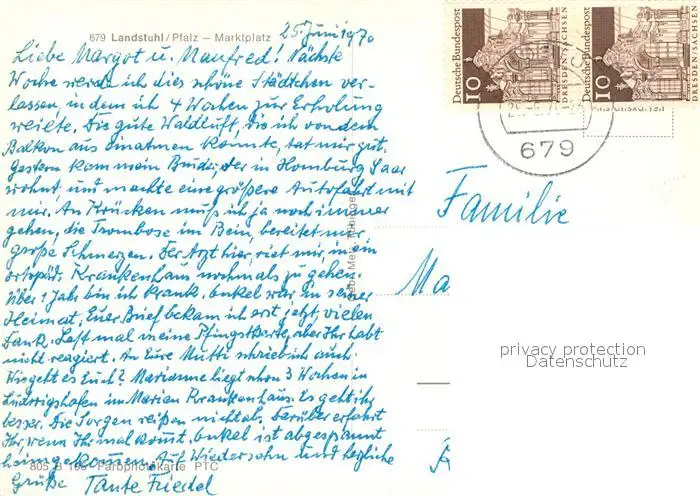 679 Landstuhl/Pfalz — Marktplatz
25. Juni 1970
Liebe Margot u. Manfred! Nächste
Woche werde ich dies schöne Städtchen ver-
lassen, in dem ich 4 Wochen zur Erholung
weilte. Die gute Waldluft, die ich von dem
Balkon aus einatmen konnte, tat mir gut.
Gestern kam mein Bruder, der in Homburg Saar
wohnt und machte eine größere Autofahrt mit
mir. An Krücken muß ich ja noch immer
gehen, die Trombose im Bein, bereitet mir
große Schmerzen. Der Arzt hier, riet mir, in ein
ortopäd. Krankenhaus nochmals zu gehen.
Über 1 Jahr bin ich krank. Onkel war in seiner
Heimat, Euer Brief bekam ich erst jetzt, vielen
Dank. Last mal meine Pfingstkarte, aber Ihr habt
nicht reagiert. An Eure Mutti schrieb ich auch.
Wie geht es Euch? Marianne liegt schon 3 Wochen in
Ludwigshafen im Marien Krankenhaus. Es geht ihr
besser. Die Sorgen reißen nicht ab. Darüber erfahrt
Ihr, wenn Ihr mal kommt. Onkel ist abgespannt
heimgekommen. Auf Wiedersehn und herzliche
Grüße Tante Friedel
805 B
Farbphotokarte PTC
Deutsche Bundespost
10
DRESDEN/SACHSEN
Deutsche Bundespost
10
DRESDEN/SACHSEN
679
Familie
Ma
privacy protection
Datenschutz